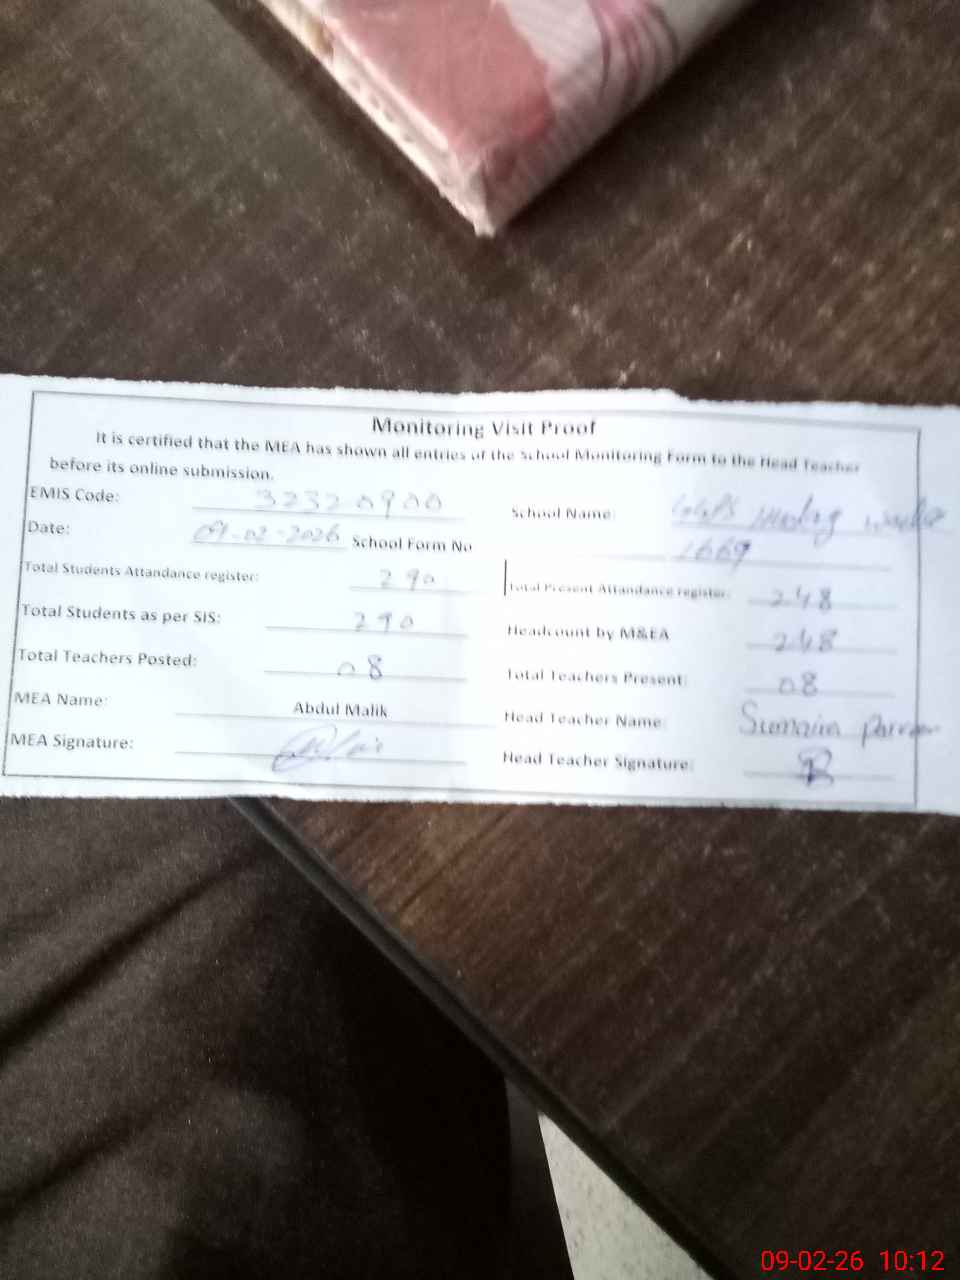 Monitoring Visit Proof
It is certified that the MEA has shown all entries of the School Monitoring Form to the Head Teacher
before its online submission.
EMIS Code: 32320900 School Name: GGPS
Date: 09-02-2026 School Form No 1669
Total Students Attandance register: 290 Total Present Attandance register: 248
Total Students as per SIS: 290 Headcount by M&EA 248
Total Teachers Posted: 08 Total Teachers Present: 08
MEA Name: Abdul Malik Head Teacher Name: Sumaira Parveen
MEA Signature: Head Teacher Signature:
09-02-26 10:12